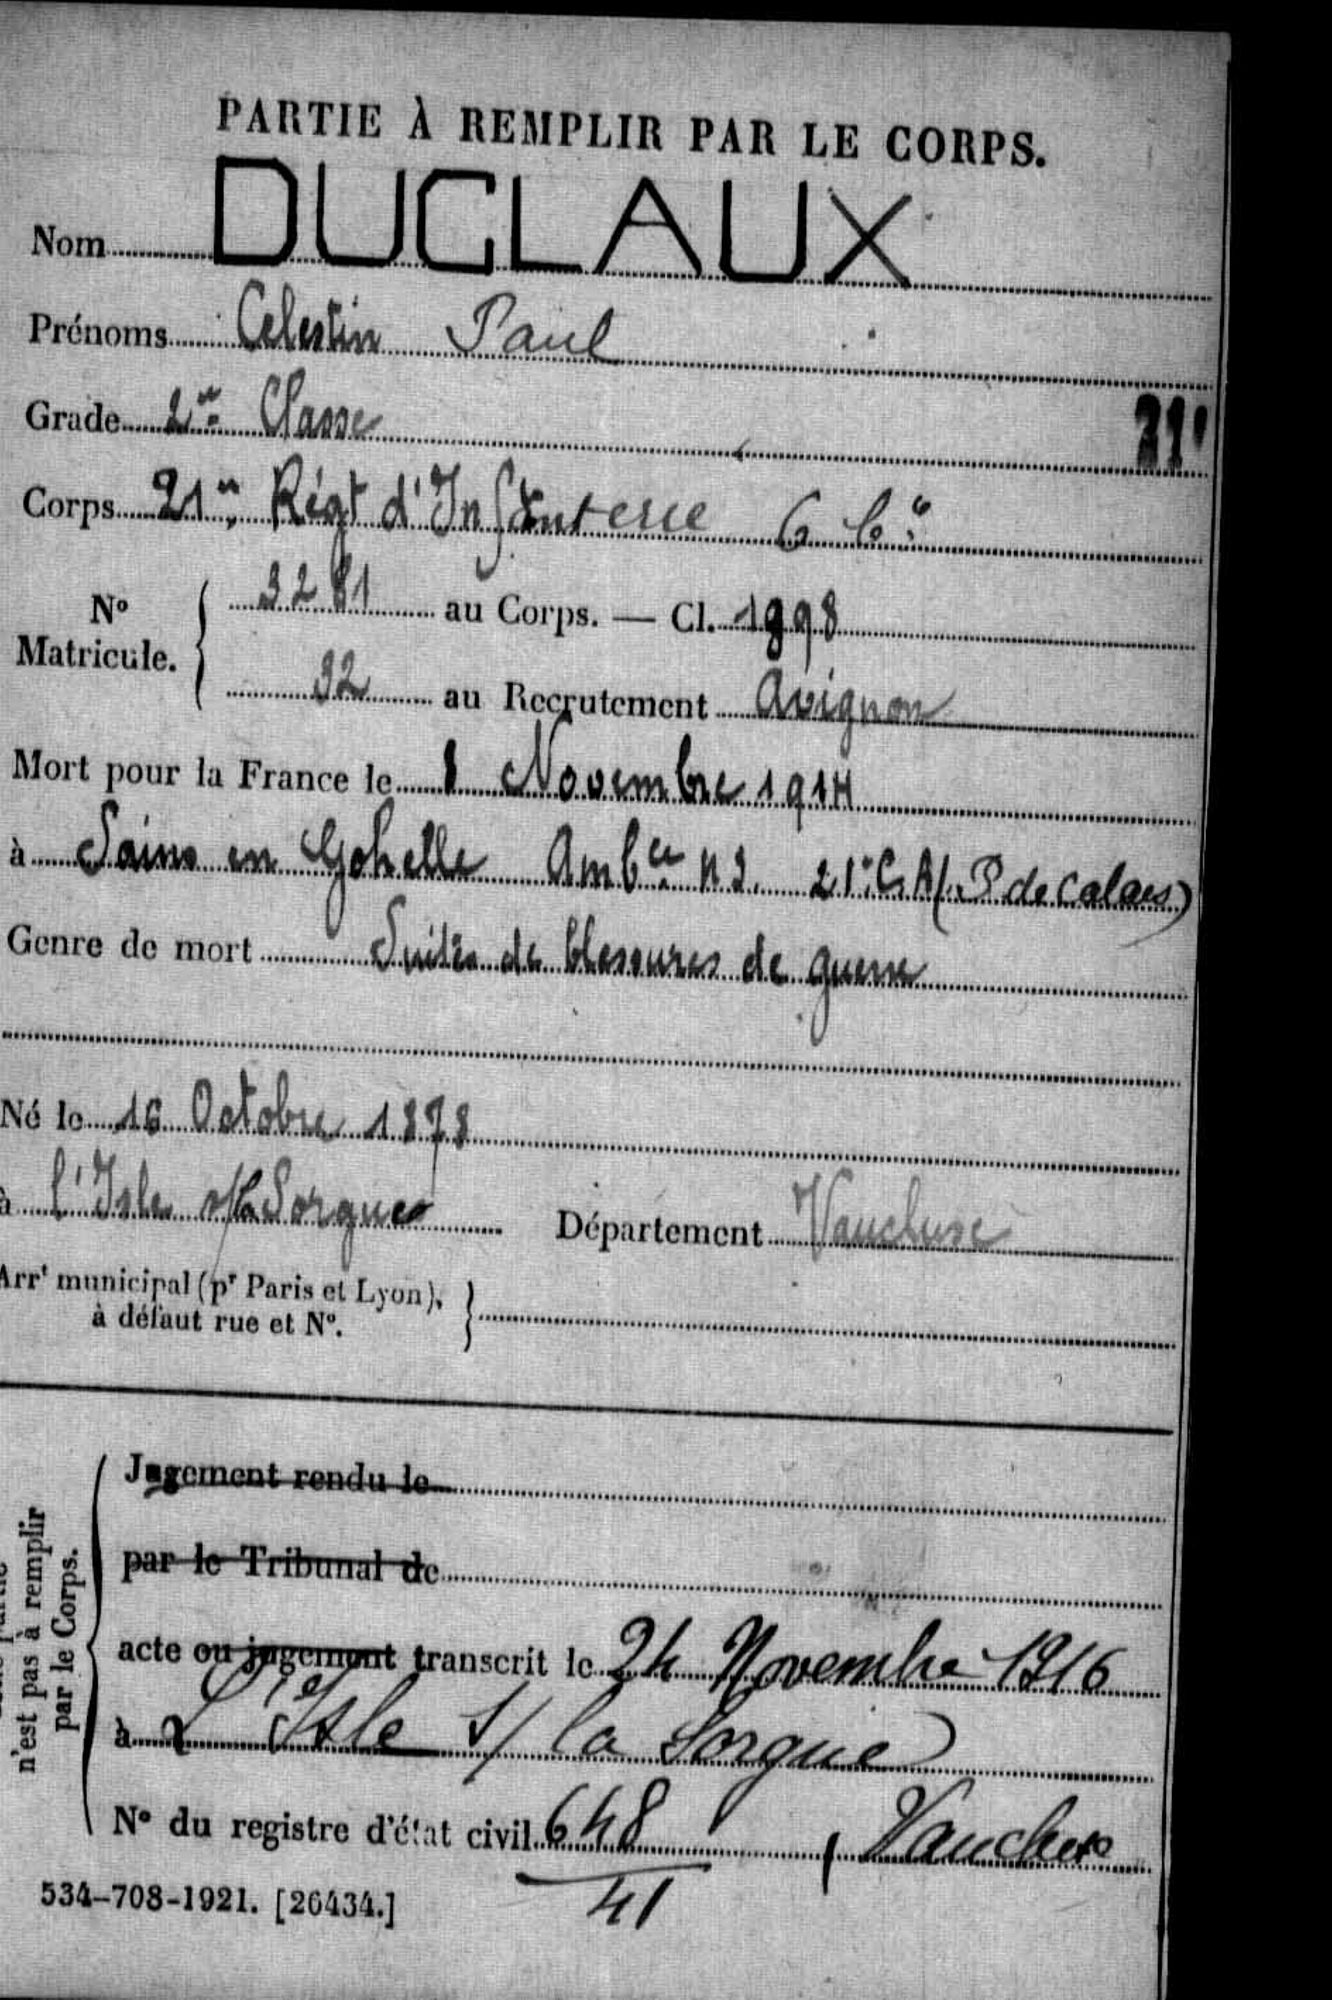 PARTIE À REMPLIR PAR LE CORPS.
Nom DUCLAUX
Prénoms Celestin Paul
Grade 2me Classe
21e
Corps 21me Régt d'Infanterie 6 Cie
No Matricule. { 3281 au Corps. — Cl. 1898
32 au Recrutement Avignon
Mort pour la France le 8 Novembre 1914
à Sains en Gohelle Ambce n 3. 21e C.A (P de Calais)
Genre de mort Suites de blessures de guerre
Né le 16 Octobre 1878
à l'Isle s/la Sorgues Département Vaucluse
Arrt municipal (pr Paris et Lyon), à défaut rue et No. }
n'est pas à remplir par le Corps.
Jugement rendu le
par le Tribunal de
acte ou jugement transcrit le 24 Novembre 1916
à L'Isle s/ la Sorgue
No du registre d'état civil 648 / 41 , Vaucluse
534-708-1921. [26434.]